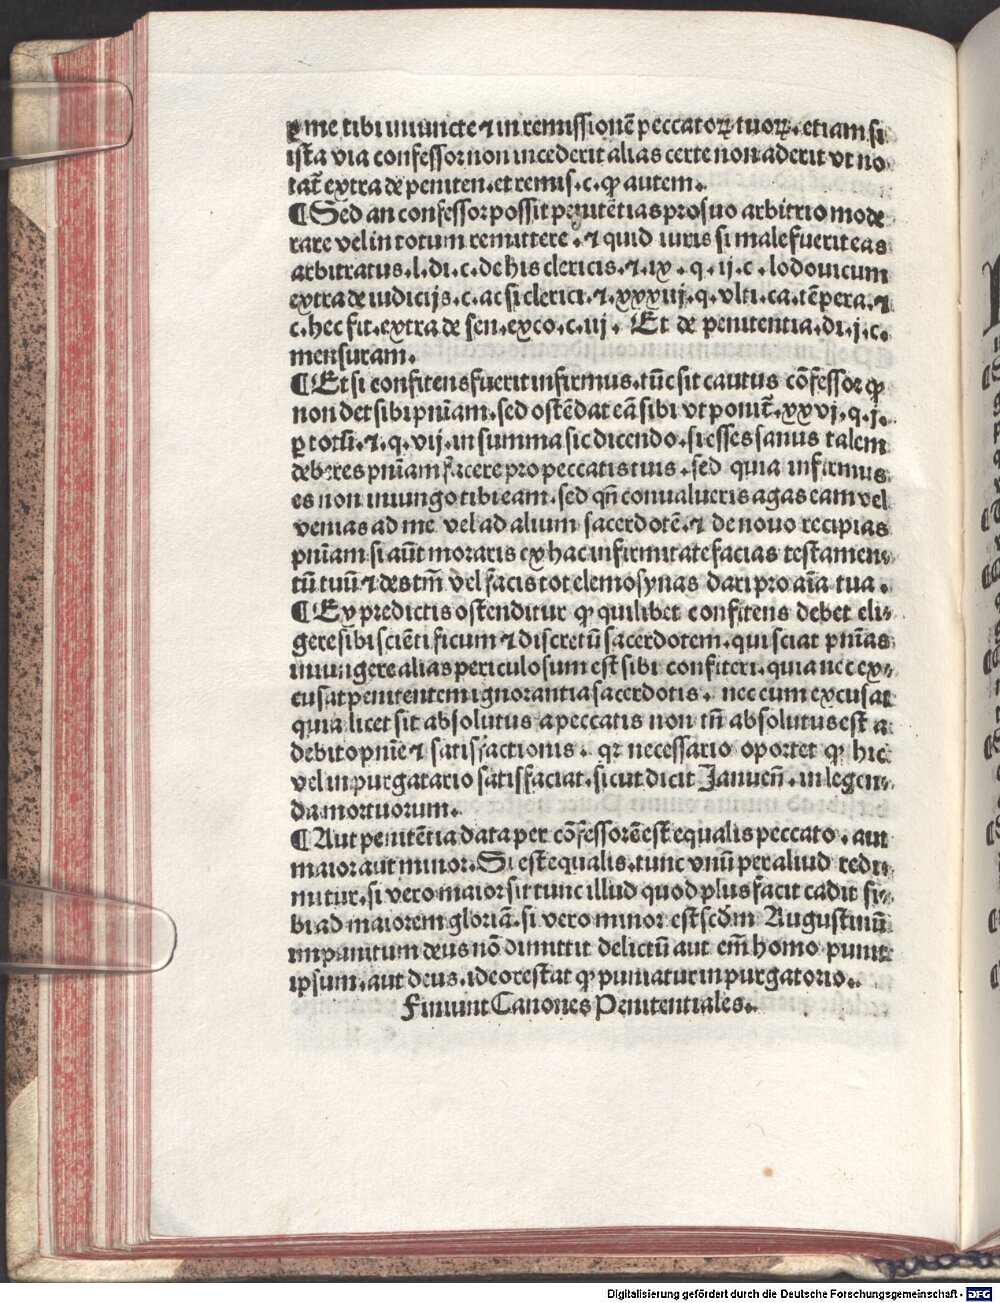 ꝑ me tibi iniuncte ⁊ in remissionē peccatoꝝ tuoꝝ. etiam si
ista via confessor non incederit alias certe non aderit vt no
tat̄ extra de peniten. et remis. c. ꝙ autem.
¶ Sed an confessor possit penitētias pro suo arbitrio mode
rare vel in totum remittere. ⁊ quid iuris si male fuerit eas
arbitratus. l. di. c. de his clericis. ⁊. ix. q. ij. c. lodouicum
extra de iudicijs. c. ac si clerici. ⁊. xxxiij. q. vlti. ca. tēpera. ⁊
c. hec fit. extra de sen. exco. c. iij. Et de penitentia. di. j. c.
mensuram.
¶ Et si confitens fuerit infirmus. tūc sit cautus cōfessor ꝙ
non det sibi pn̄iam. sed ostēdat eā sibi vt ponit̄. xxvj. q. j.
ꝑ totū. ⁊. q. vij. in summa sic dicendo. si esses sanus talem
deberes pn̄iam facere pro peccatis tuis. sed quia infirmus
es non iniungo tibi eam. sed qn̄ conualueris agas eam vel
venias ad me vel ad alium sacerdotē. ⁊ de nouo recipias
pn̄iam si aūt moraris ex hac infirmitate facias testamen⸗
tū tuū ⁊ de st̄m vel facis tot elemosynas dari pro aīa tua.
¶ Ex predictis ostenditur ꝙ quilibet confitens debet eli⸗
gere sibi scientificum ⁊ discretū sacerdotem. qui sciat pn̄ias
iniungere alias periculosum est sibi confiteri. quia nec ex⸗
cusat penitentem ignorantia sacerdotis. nec eum excusat
quia licet sit absolutus a peccatis non tn̄ absolutus est a
debito pn̄ie ⁊ satisfactionis. qꝛ necessario oportet ꝙ hic
vel in purgatario satisfaciat. sicut dicit Januen̄. in legen⸗
da mortuorum.
¶ Aut penitētia data per cōfessorē est equalis peccato. aut
maior aut minor. Si est equalis. tunc vnū per aliud redi⸗
mitur. si vero maior sit tunc illud quod plus facit cadit si⸗
bi ad maiorem gloriā. si vero minor est scd̄m Augustinū
impunitum deus nō dimittit delictū aut em̄ homo punit
ipsum. aut deus. ideo restat ꝙ puniatur in purgatorio.
Finiunt Canones Penitentiales.
Digitalisierung gefördert durch die Deutsche Forschungsgemeinschaft - DFG